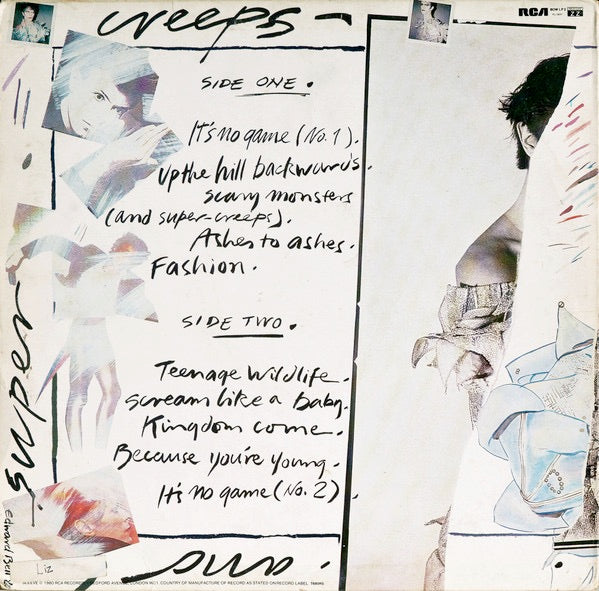 creeps
RCA BOW LP 2
SIDE ONE.
It's no game (No. 1).
Up the hill backwards.
scary monsters
(and super-creeps).
Ashes to ashes.
Fashion.
SIDE TWO.
Teenage Wildlife.
scream like a baby.
Kingdom come.
Because you're young.
It's no game (No. 2).
super
Edward Bell
Liz
and
1980 RCA RECORDS, BEDFORD AVENUE, LONDON WC1. COUNTRY OF MANUFACTURE OF RECORD AS STATED ON RECORD LABEL